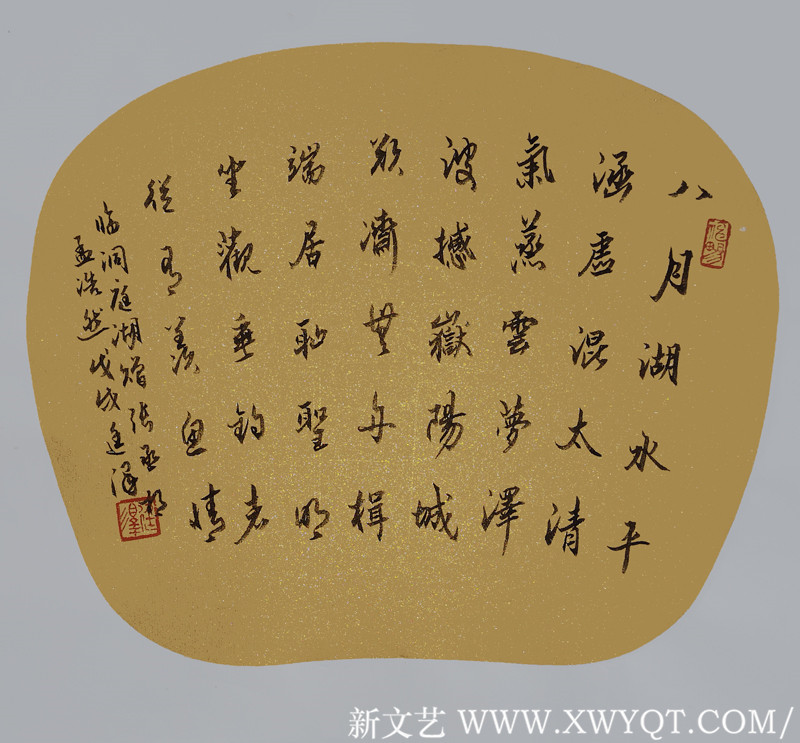 八月湖水平
涵虛混太清
氣蒸雲夢澤
波撼嶽陽城
欲濟無舟楫
端居恥聖明
坐觀垂釣者
徒有羨魚情
临洞庭湖赠張丞相
孟浩然戊戌廷泽
新文艺 WWW.XWYQT.COM/